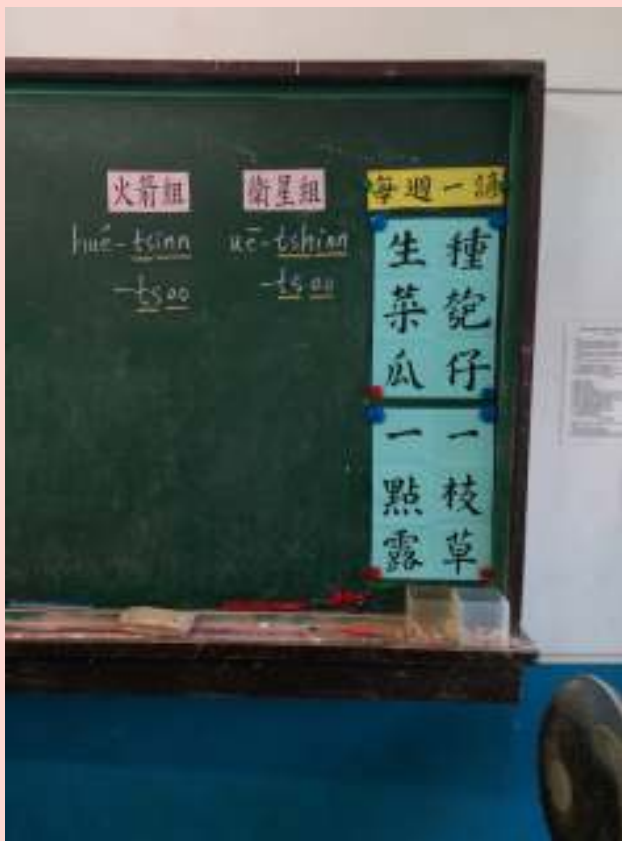 火箭組
hué-tsinn
-tsoo
衛星組
uē-tshinn
-tsoo
每週一諺
種匏仔
生菜瓜
一枝草
一點露